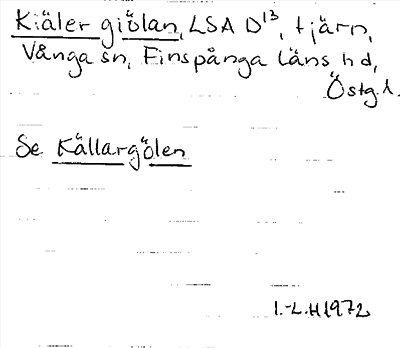 Kiäler giölan, LSA D13, tjärn,
Vånga sn, Finspånga läns hd,
Östg. l.
Se Källargölen
I.-L. H 1972